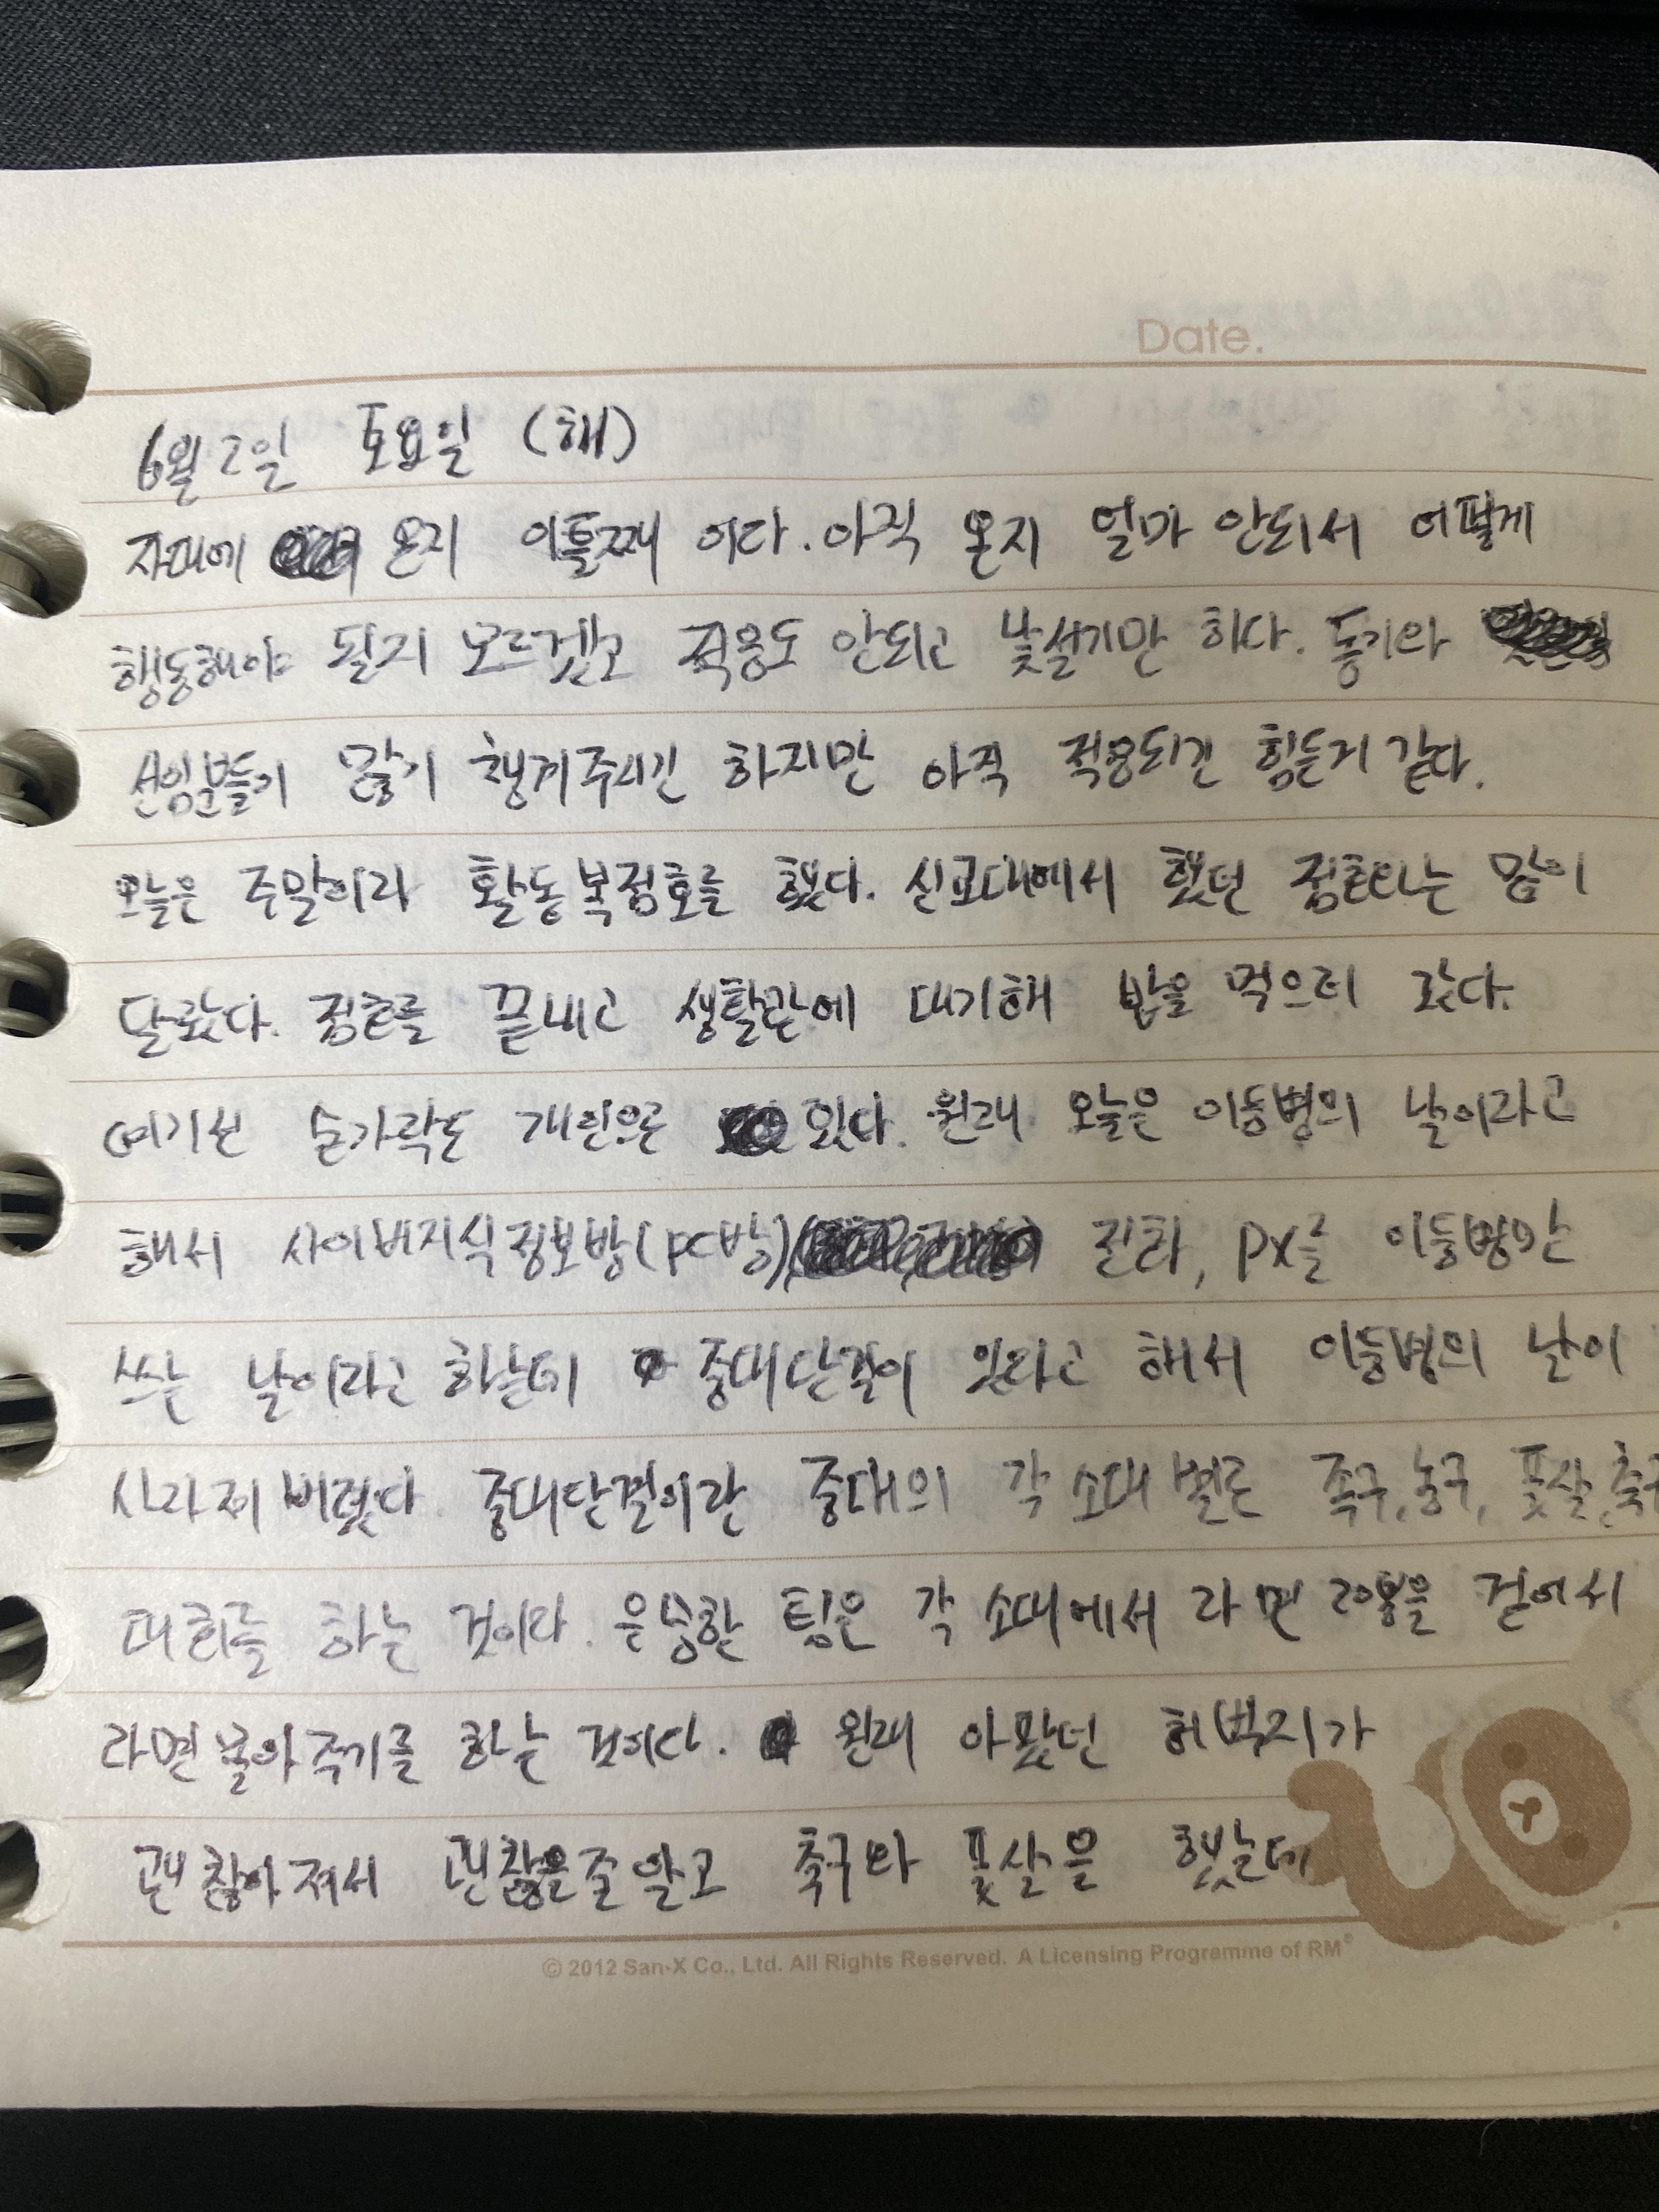 Date.
6월 2일 토요일 (해)
자대에 온지 이틀째 이다. 아직 온지 얼마 안되서 어떻게
행동해야 될지 모르겠고 적응도 안되고 낯설기만 하다. 동기와
선임분들이 많이 챙겨주시긴 하지만 아직 적응되긴 힘든거 같다.
오늘은 주말이라 활동복점호를 했다. 신교대에서 했던 점호와는 많이
달랐다. 점호를 끝내고 생활관에 대기해 밥을 먹으러 갔다.
여기선 숟가락도 개인으로 있다. 원래 오늘은 이등병의 날이라고
해서 사이버지식정보방(pc방) 전화, px를 이등병만
쓰는 날이라고 하는데 중대단결이 있다고 해서 이등병의 날이
사라져 버렸다. 중대단결이란 중대의 각 소대 별로 족구, 농구, 풋살, 축구
대회를 하는 것이다. 우승한 팀은 각 소대에서 라면 20봉을 걷어서
라면 몰아주기를 하는 것이다. 원래 아팠던 허벅지가
괜찮아져서 괜찮을줄 알고 축구와 풋살을 했는데
© 2012 San-X Co., Ltd. All Rights Reserved. A Licensing Programme of RM®